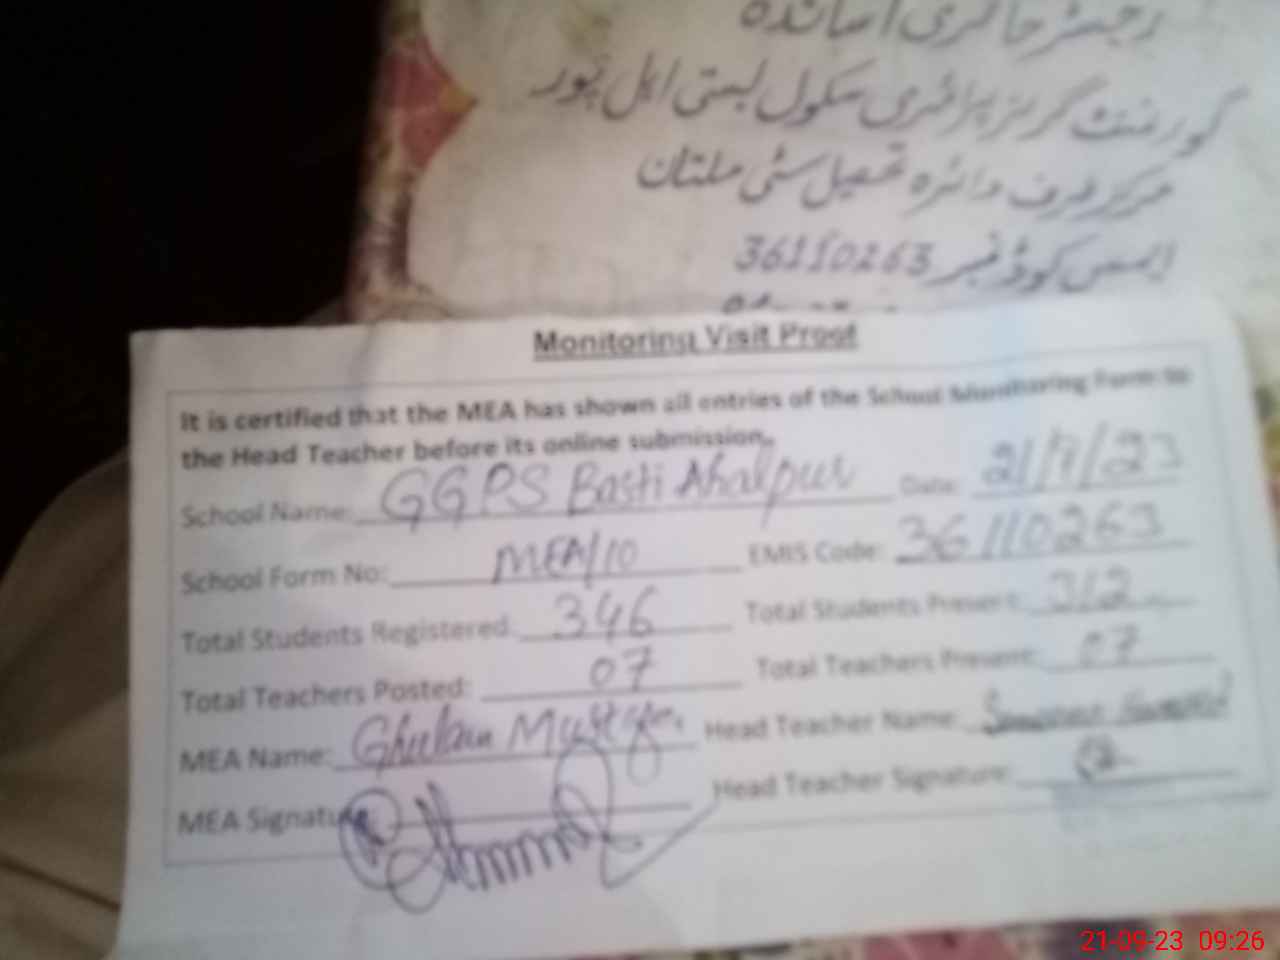 رجسٹر حاضری اساتذہ
گورنمنٹ گرلز پرائمری سکول بستی اہل پور
مرکز طرف دائرہ تحصیل سٹی ملتان
ایمس کوڈ نمبر 36110263
Monitoring Visit Proof
It is certified that the MEA has shown all entries of the School Monitoring Form to
the Head Teacher before its online submission.
School Name: GGPS Basti Ahalpur Date: 21/9/23
School Form No: MEA/10 EMIS Code: 36110263
Total Students Registered: 346 Total Students Present: 312
Total Teachers Posted: 07 Total Teachers Present: 07
MEA Name: Ghulam Mustafa Head Teacher Name:
MEA Signature: Head Teacher Signature:
21-09-23 09:26